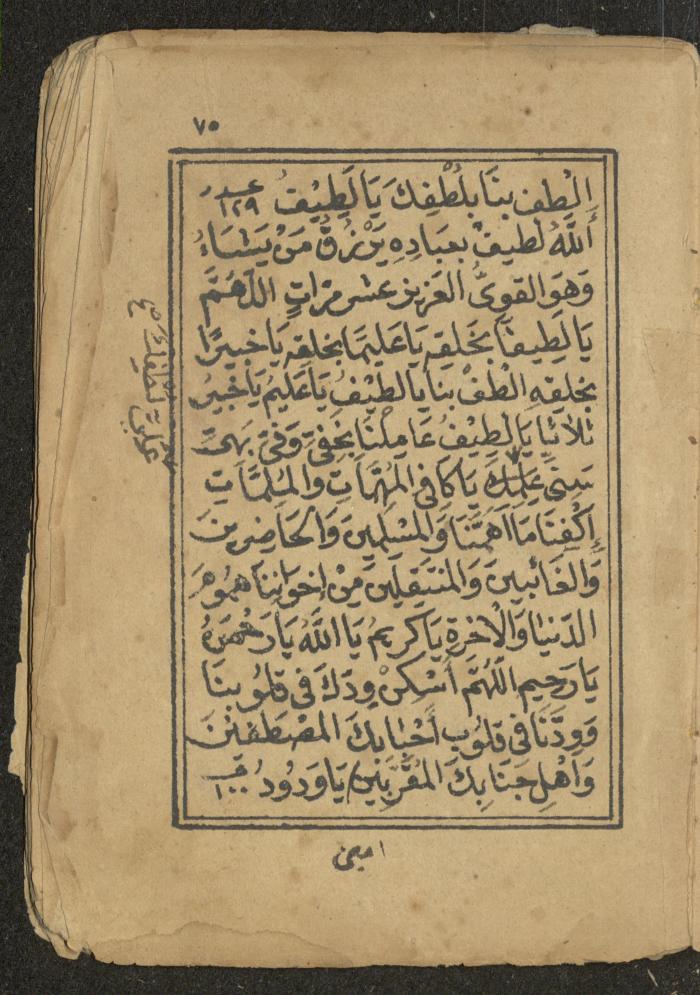 ٧٥
اِلْطُف بنَا بِلُطْفِكَ يَا لَطِيْفُ عدد ١٢٩
أَللّٰهُ لَطيفٌ بعبَادِهِ يَرْزُقُ مَنْ يَشَاءُ
وَهوَ القوىُّ العَزيز عشر مرّاتٍ اللّهُمَّ
يَا لَطِيفًا بخَلقِهِ يَا عَليمًا بخلقِهِ يَا خبيرًا
بخلقِهِ الْطفْ بنَا يا لطيْفُ يَا عَليْمُ يَا خَبيْرُ
ثلاثًا يَا لطِيْفُ عَامِلْنَا بخفيّ وَفيّ بَهىّ
سنىّ عِلْمِكَ يَا كَافى المُهمَّاتِ والمُلمَّاتِ
إِكْفنَا مَا اَهمَّنَا وَالمسْلِمينَ وَالحَاضِرينَ
وَالغَائبينَ وَالمنتَقِلينَ مِنْ اِخوَاننَا همُومَ
الدّنيَا وَالْاخرةِ يَا كريمُ يَا اَللّٰهُ يَا رَحْمٰنُ
يَا رَحيم اللّهُمَّ أسْكنْ وِدَّكَ فى قلُوبنَا
وَوِدَّنَا فى قلُوب أَحْبَابكَ المصْطَفَيْنَ
وَاَهْلِ جَنَابِكَ المُقَرَّبينَ يَا وَدُودُ ١٠٠
امين